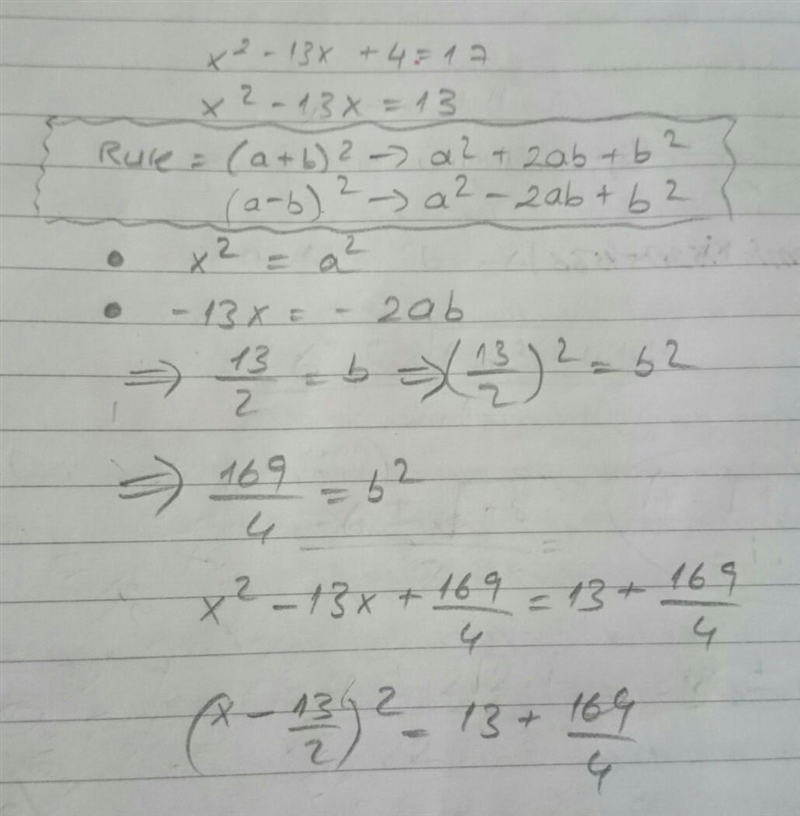 x² - 13x + 4 = 17
x² - 13x = 13
Rule = (a+b)² → a² + 2ab + b²
(a-b)² → a² - 2ab + b²
• x² = a²
• -13x = - 2ab
⇒ 13/2 = b ⇒ (13/2)² = b²
⇒ 169/4 = b²
x² - 13x + 169/4 = 13 + 169/4
(x - 13/2)² = 13 + 169/4